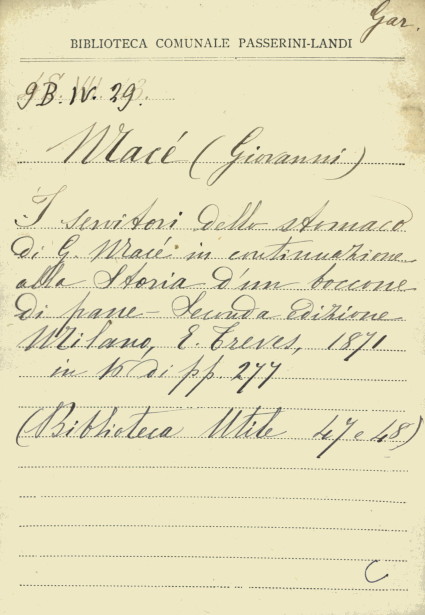 Gar.
BIBLIOTECA COMUNALE PASSERINI-LANDI
9B. IV. 29.
Macé (Giovanni)
I servitori dello stomaco
di G. Macé in continuazione
alla Storia d'un boccone
di pane - Seconda edizione
Milano, E. Treves, 1871
in 16 di pp. 277
(Biblioteca Utile 47 e 48)
C